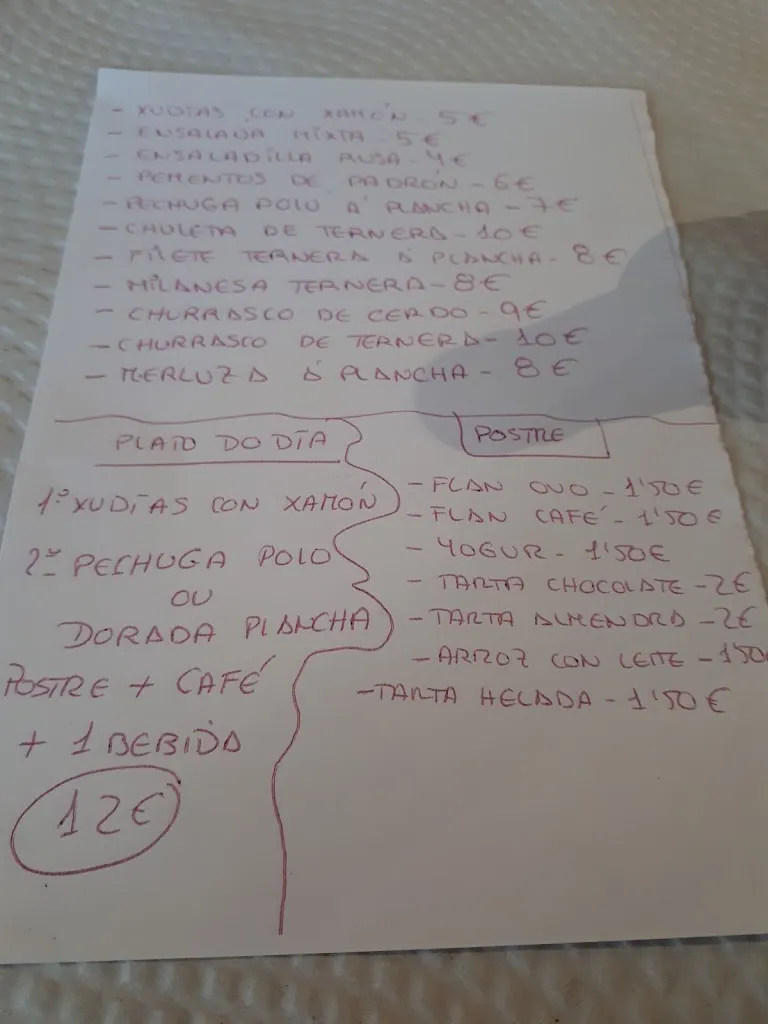 - XUDÍAS CON XAMÓN - 5€
- ENSALADA MIXTA - 5€
- ENSALADILLA RUSA - 4€
- PEMENTOS DE PADRÓN - 6€
- PECHUGA POLO Á PLANCHA - 7€
- CHULETA DE TERNERA - 10€
- FILETE TERNERA Á PLANCHA - 8€
- MILANESA TERNERA - 8€
- CHURRASCO DE CERDO - 9€
- CHURRASCO DE TERNERA - 10€
- MERLUZA Á PLANCHA - 8€
PLATO DO DÍA
1º XUDÍAS CON XAMÓN
2º PECHUGA POLO
OU
DORADA PLANCHA
POSTRE + CAFÉ
+ 1 BEBIDA
12€
POSTRE
- FLAN OVO - 1'50€
- FLAN CAFÉ - 1'50€
- YOGUR - 1'50€
- TARTA CHOCOLATE - 2€
- TARTA ALMENDRA - 2€
- ARROZ CON LEITE - 1'50
- TARTA HELADA - 1'50€